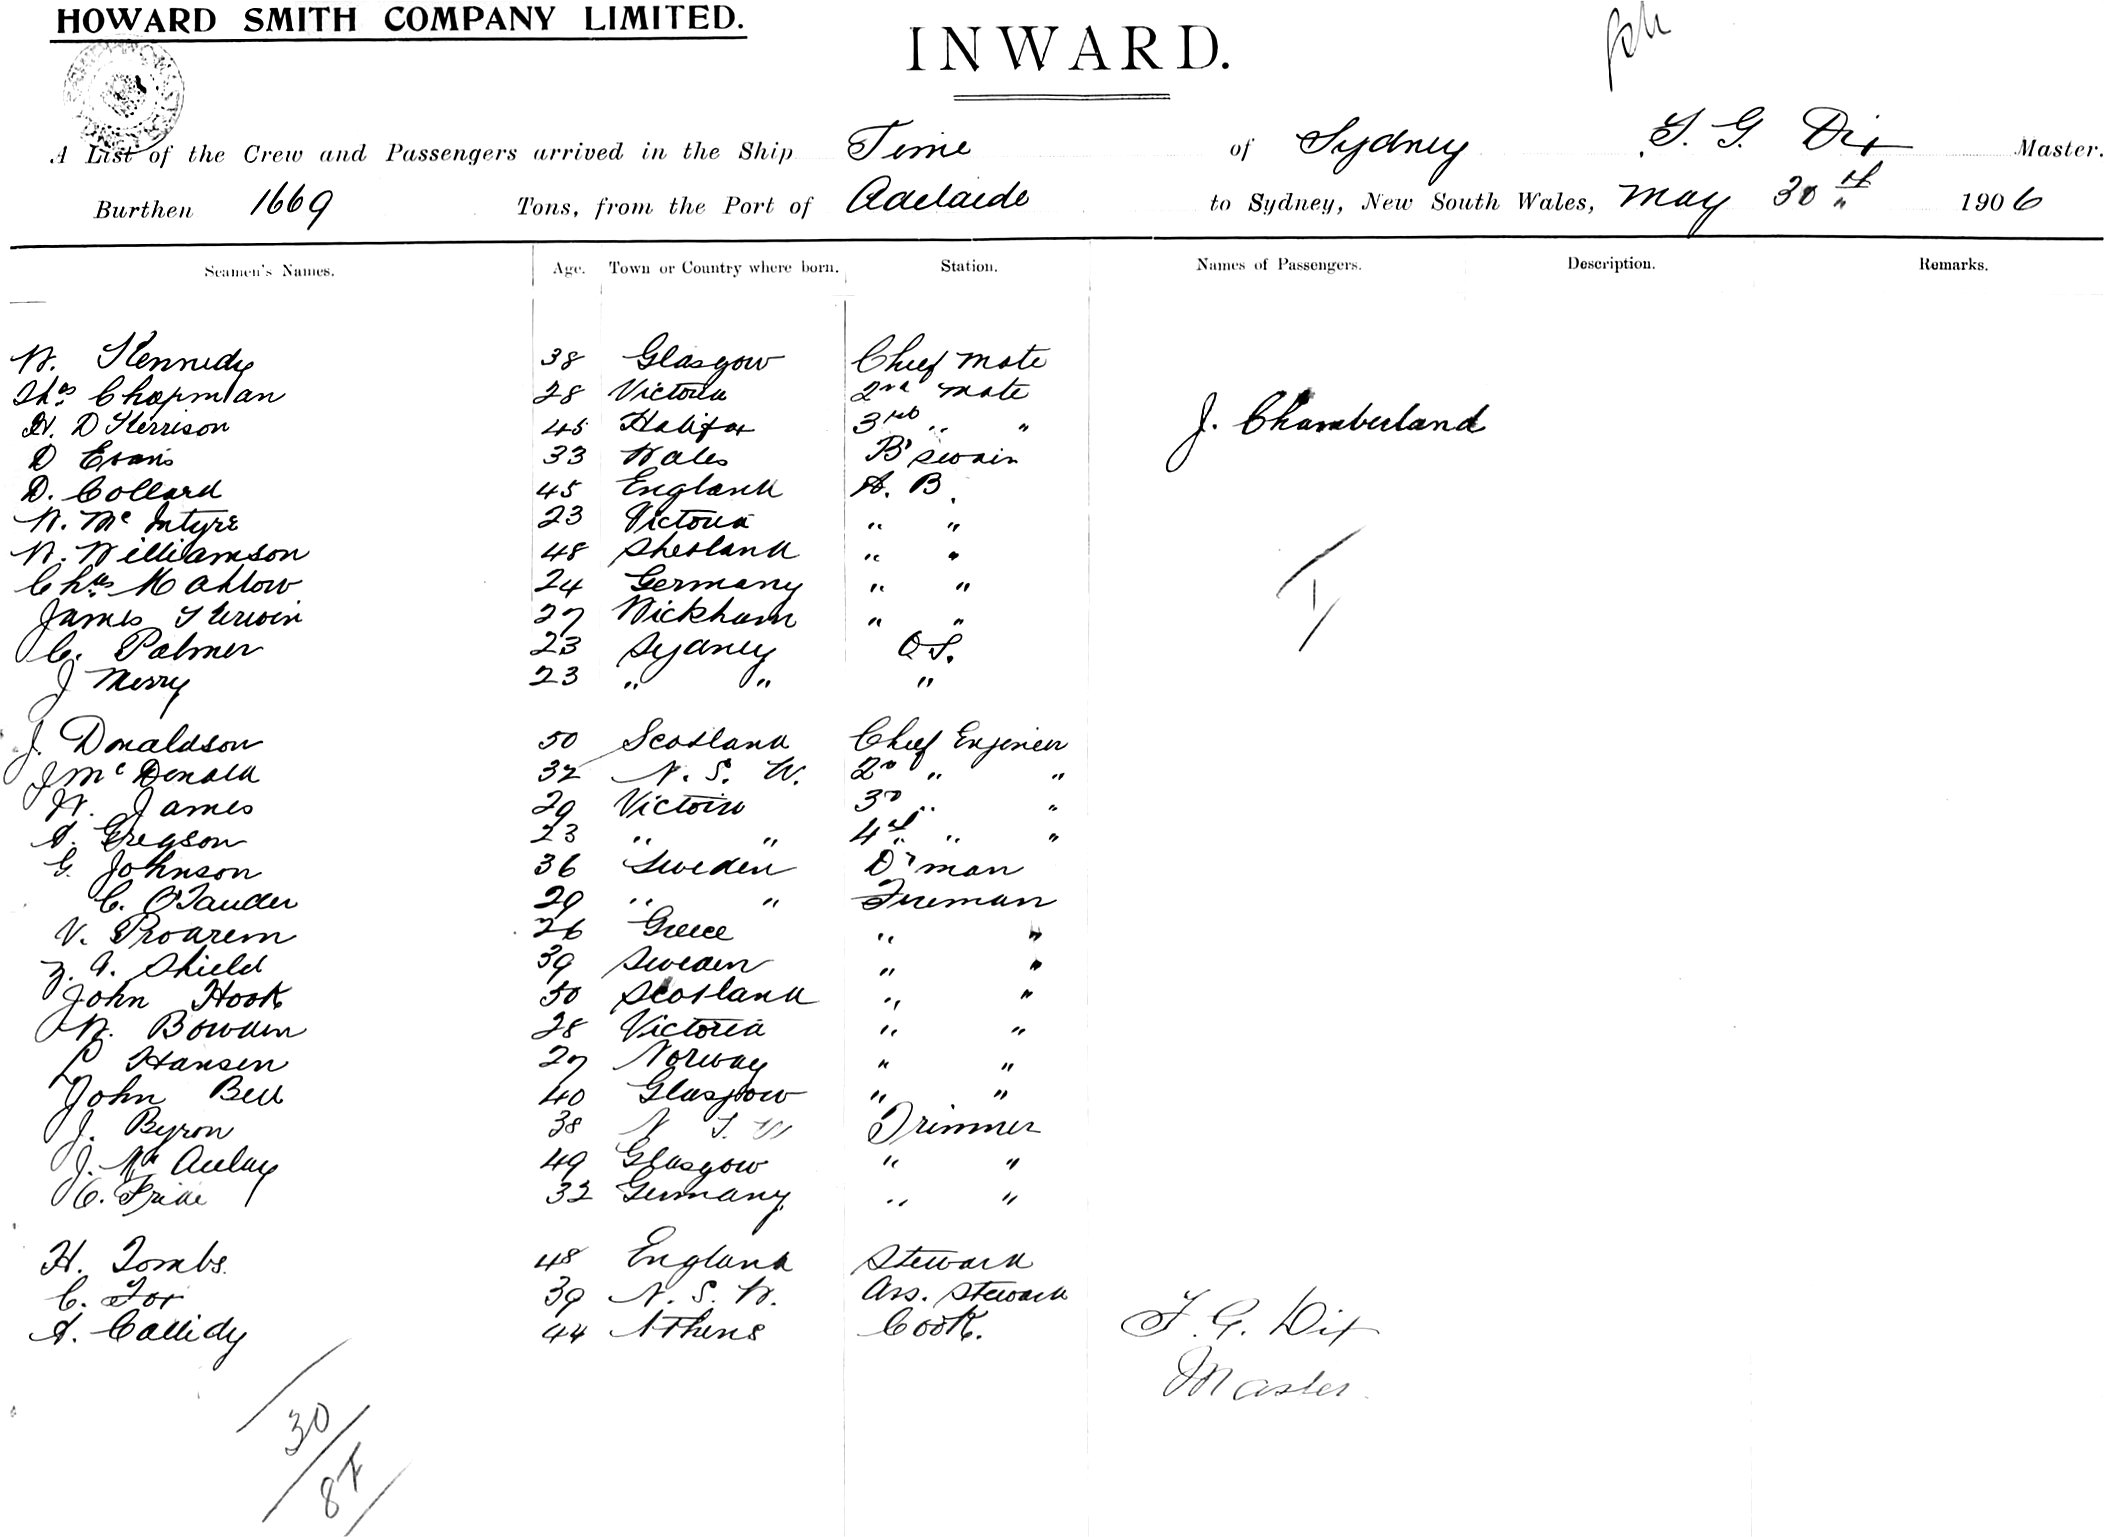 HOWARD SMITH COMPANY LIMITED.
INWARD.
A List of the Crew and Passengers arrived in the Ship Time of Sydney, F. G. Dix Master.
Burthen 1669 Tons, from the Port of Adelaide to Sydney, New South Wales, May 30th 1906
Seamen's Names. Age. Town or Country where born. Station. Names of Passengers. Description. Remarks.
W. Kennedy 38 Glasgow Chief Mate
Thos Chapman 28 Victoria 2nd Mate
H. D Kerrison 45 Halifax 3rd " "
J. Chamberland
D Evans 33 Wales B'swain
D. Collard 45 England A. B.
W. Mc Intyre 23 Victoria " "
W. Williamson 48 Shetland " "
Chas Mahlow 24 Germany " "
James Kerwin 27 Wickham " "
C. Palmer 23 Sydney O S.
J Merry 23 " " "
1
J. Donaldson 50 Scotland Chief Engineer
J Mc Donald 32 N. S. W. 2nd " "
W. James 29 Victoria 3rd " "
A. Gregson 23 " " 4th " "
G. Johnson 36 Sweden D'man
C. O'Lander 29 " " Fireman
V. 26 Greece " "
A. Shield 39 Sweden " "
John Hook 50 Scotland " "
W. Bowden 28 Victoria " "
L Hansen 27 Norway " "
John Bell 40 Glasgow " "
J. Byron 38 N S W Trimmer
J. Mc Aulay 49 Glasgow " "
C. 32 Germany " "
H. Tombs. 48 England Steward
C. Fox 39 N. S. W. Ass. Steward
A. Callidy 44 Athens Cook.
F. G. Dix
Master.
30